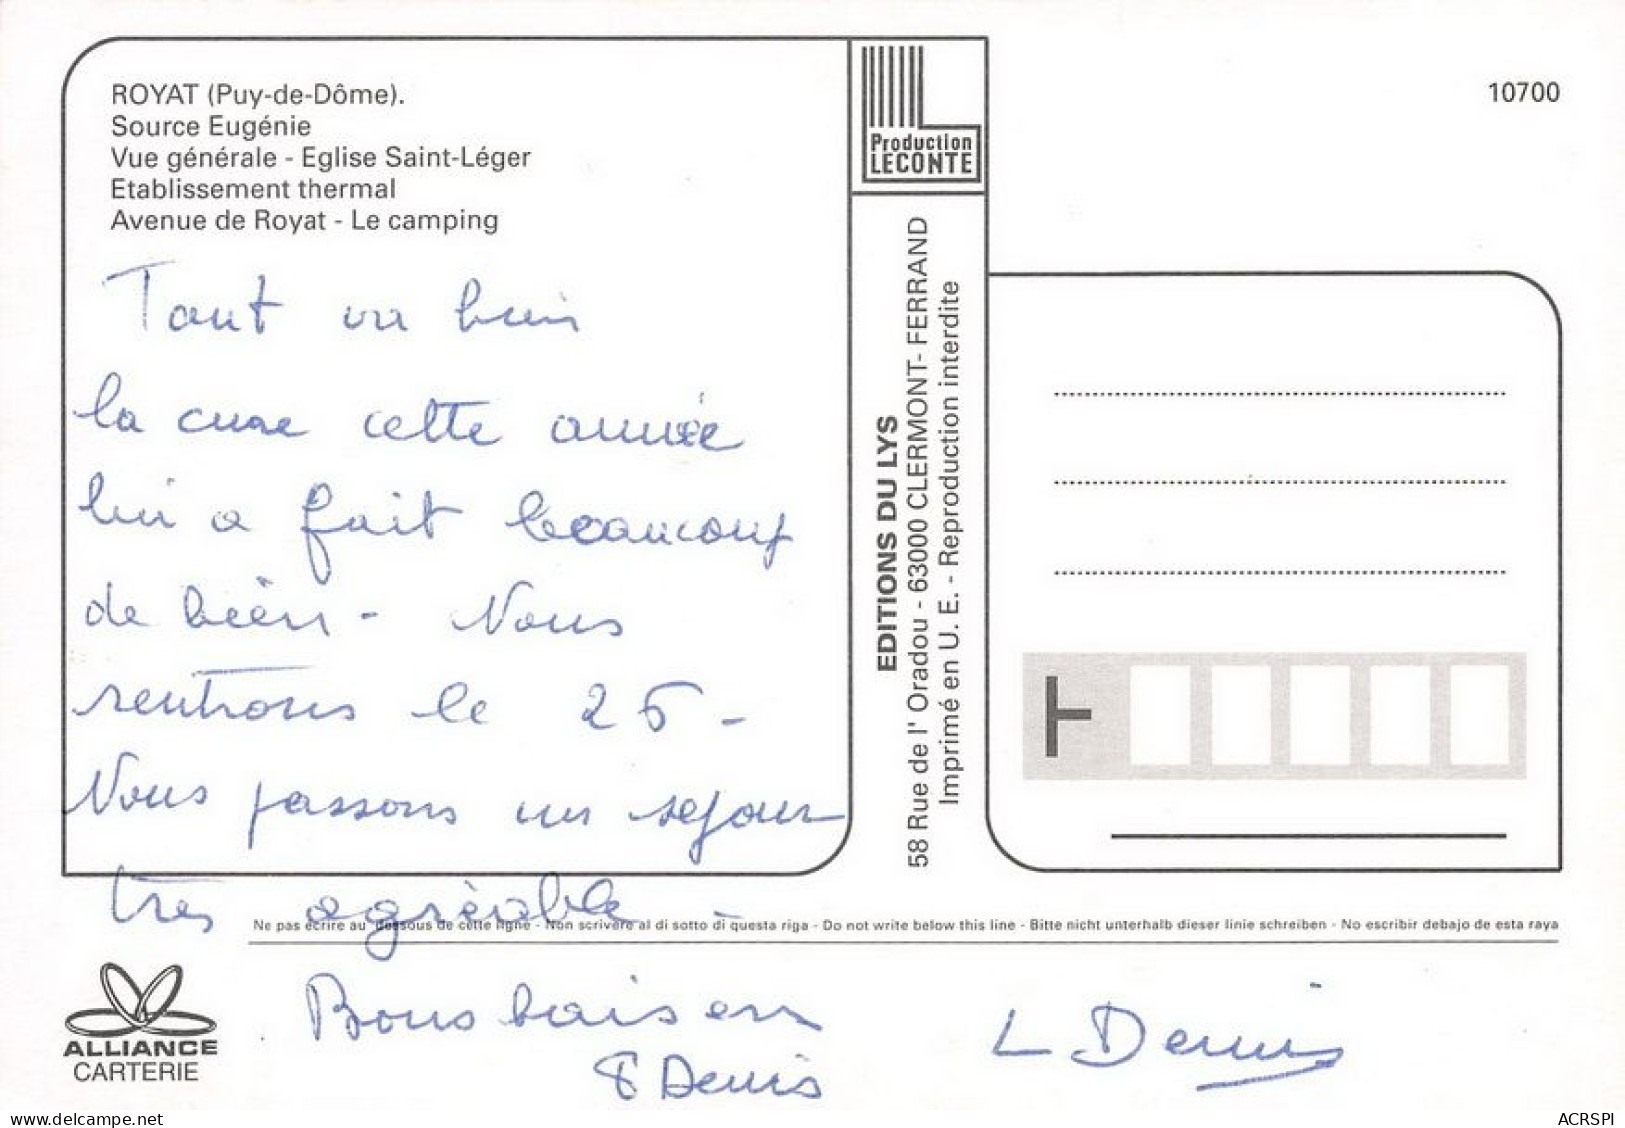 ROYAT (Puy-de-Dôme).
Source Eugénie
Vue générale - Eglise Saint-Léger
Etablissement thermal
Avenue de Royat - Le camping
Tout va bien
la cure cette année
lui a fait beaucoup
de bien - Nous
rentrons le 25 -
Nous passons un sejour
tres agréable -
Bons baisers
Denis
L Denis
Production
LECONTE
10700
EDITIONS DU LYS
58 Rue de l' Oradou - 63000 CLERMONT- FERRAND
Imprimé en U. E. - Reproduction interdite
Ne pas écrire au dessous de cette ligne - Non scrivere al di sotto di questa riga - Do not write below this line - Bitte nicht unterhalb dieser linie schreiben - No escribir debajo de esta raya
ALLIANCE
CARTERIE
www.delcampe.net
ACRSPI